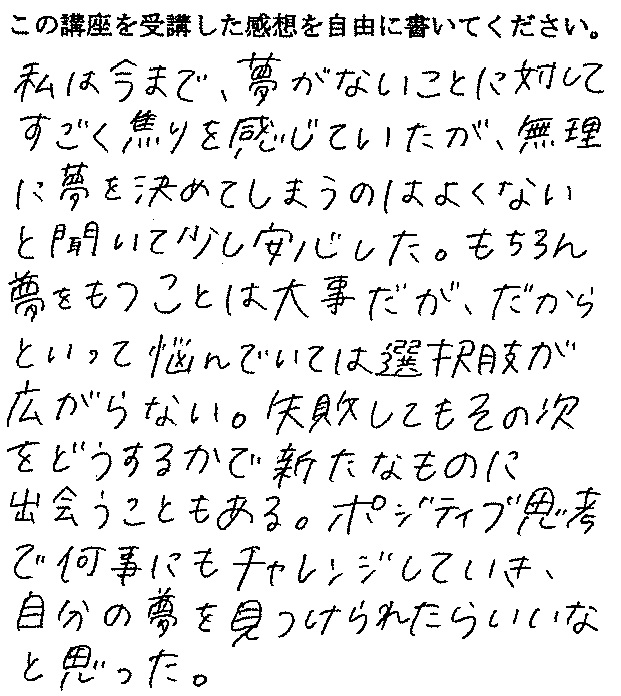 この講座を受講した感想を自由に書いてください。
私は今まで、夢がないことに対して
すごく焦りを感じていたが、無理
に夢を決めてしまうのはよくない
と聞いて少し安心した。もちろん
夢をもつことは大事だが、だから
といって悩んでいては選択肢が
広がらない。失敗してもその次
をどうするかで新たなものに
出会うこともある。ポジティブ思考
で何事にもチャレンジしていき、
自分の夢を見つけられたらいいな
と思った。